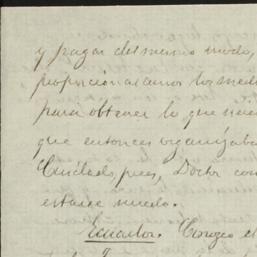 y pagar del mismo modo,
proporcionarnos los med
para obtener lo que
que entonces organizaba
Cuidado, pues, Doctor con
estarse mudo.
Ecuador. Conozco el